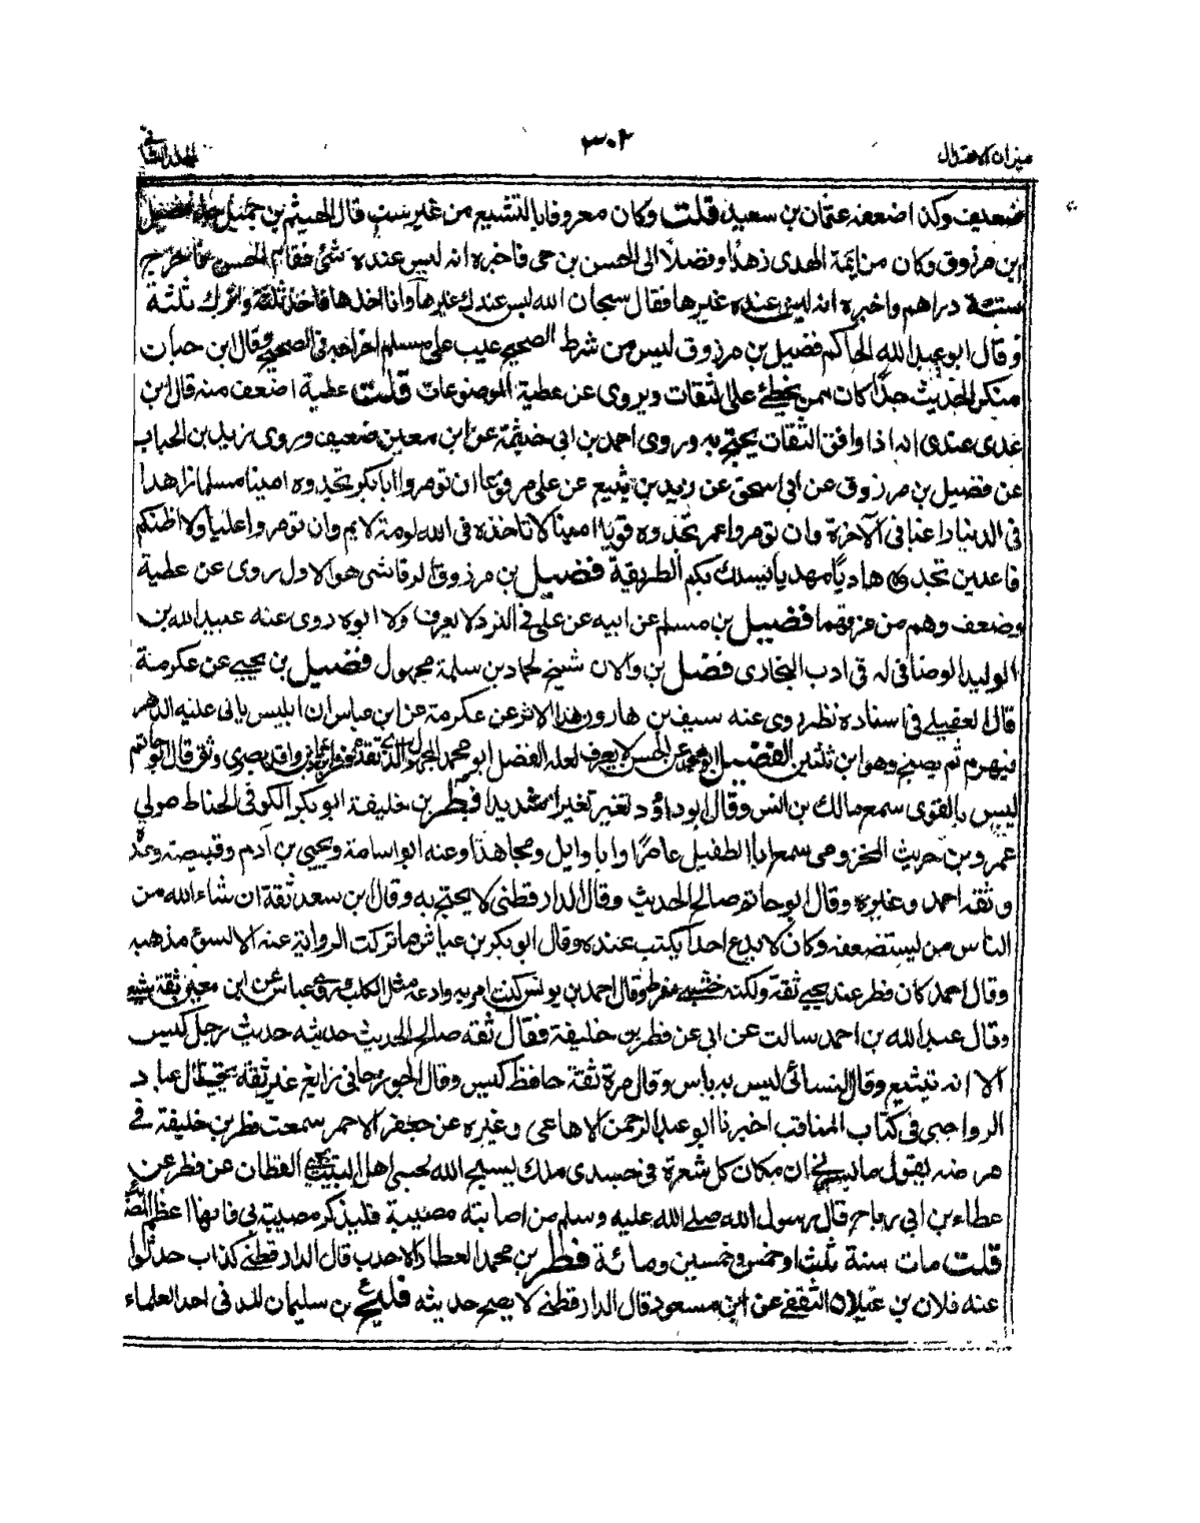 ميزان الاعتدال
٣٠٢
المجلد الثاني
ضعيف وكذا ضعفه عثمان بن سعيد قلت وكان معروفا بالتشيع من غير سب قال الهيثم بن جميل جاء فضيل
ابن مرزوق وكان من ايمة الهدى زهدا وفضلا الى الحسن بن حى فاخبره انه ليس عنده شئ فقام الحسن فاخرج
ستة دراهم واخبره انه ليس عنده غيرها فقال سبحان الله ليس عندك غيرها وانا اخذها فاخذ ثلثة واترك ثلثة
وقال ابو عبد الله الحاكم فضيل بن مرزوق ليس من شرط الصحيح عيب على مسلم اخراجه فى الصحيح وقال ابن حبان
منكر الحديث جدا كان ممن يخطئ على الثقات ويروى عن عطية الموضوعات قلت عطية اضعف منه قال ابن
عدى عندى انه اذا وافق الثقات يحتج به وروى احمد بن ابى خيثمة عن ابن معين ضعيف وروى زيد بن الحباب
عن فضيل بن مرزوق عن ابى اسحق عن زيد بن يثيع عن على مرفوعا ان تومروا ابا بكر تجدوه امينا مسلما زاهدا
فى الدنيا راغبا فى الآخرة وان تومروا عمر تجدوه قويا امينا لا تاخذه فى الله لومة لايم وان تومروا عليا ولا اظنكم
فاعلين تجدوه هاديا مهديا يسلك بكم الطريقة فضيل بن مرزوق الرقاشى هو الاول روى عن عطية
وضعف وهم من فرقهما فضيل بن مسلم عن ابيه عن على فى النرد لا يعرف ولا ابوه روى عنه عبيد الله بن
الوليد الوصافى له فى ادب البخارى فضل بن والان شيخ لحماد بن سلمة مجهول فضيل بن يحيى عن عكرمة
قال العقيلى فى اسناده نظر روى عنه سيف بن هارون هذا الاثر عن عكرمة عن ابن عباس ان ابليس ياتى عليه الدهر
فيهرم ثم يصبح وهو ابن ثلثين الفضيل ابو محمد عن الحسن لا يعرف لعله الفضل ابو محمد المجهول الذى تقدم بن واقد بصرى وثق قال ابو حاتم
ليس بالقوى سمع مالك بن انس وقال ابو داؤد تغير تغيرا شديدا فطر بن خليفة ابو بكر الكوفى الحناط مولى
عمرو بن حريث المخزومى سمع ابا الطفيل عامرا وابا وايل ومجاهدا وعنه ابو اسامة ويحيى بن آدم وقبيصة وعدة
وثقه احمد وغيره وقال ابو حاتم صالح الحديث وقال الدارقطنى لا يحتج به وقال ابن سعد ثقة ان شاء الله من
الناس من يستضعفه وكان لا يدع احدا يكتب عنده وقال ابو بكر بن عياش ما تركت الرواية عنه الا لسوء مذهبه
وقال احمد كان فطر عند يحيى ثقة ولكنه خشبى مفرط وقال احمد بن يونس كنت امر به وادعه مثل الكلب وروى عباس عن ابن معين ثقة شيعى
وقال عبد الله بن احمد سالت عن ابى عن فطر بن خليفة فقال ثقة صالح الحديث حديثه حديث رجل كيس
الا انه يتشيع وقال النسائى ليس به باس وقال مرة ثقة حافظ كيس وقال الجوزجانى زايغ غير ثقة قال عباد
الرواجبى فى كتاب المناقب اخبرنا ابو عبد الرحمن الاصباعى وغيره عن جعفر الاحمر سمعت فطر بن خليفة فى
مرضه يقول ما يسرنى ان مكان كل شعرة فى جسدى ملك يسبح الله لحبى اهل البيت يحيى القطان عن فطر عن
عطاء بن ابى رباح قال رسول الله صلى الله عليه وسلم من اصابته مصيبة فليذكر مصيبته بى فانها اعظم المصائب
قلت مات سنة ثلث او خمس وخمسين ومائة فطر بن محمد العطار الاحدب قال الدارقطنى كذاب حدثوا
عنه فلان بن غيلان الثقفى عن ابن مسعود قال الدارقطنى لا يصح حديثه فليح بن سليمان المدنى احد العلماء